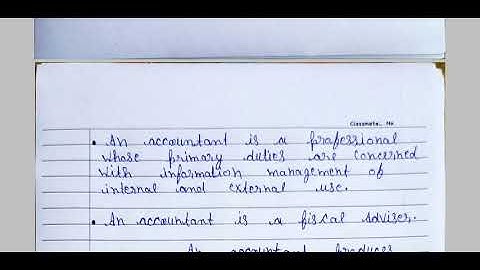 Classmate, No
• An accountant is a professional
whose primary duties are concerned
with information management of
internal and external use.
• An accountant is a fiscal adviser.
An accountant produces